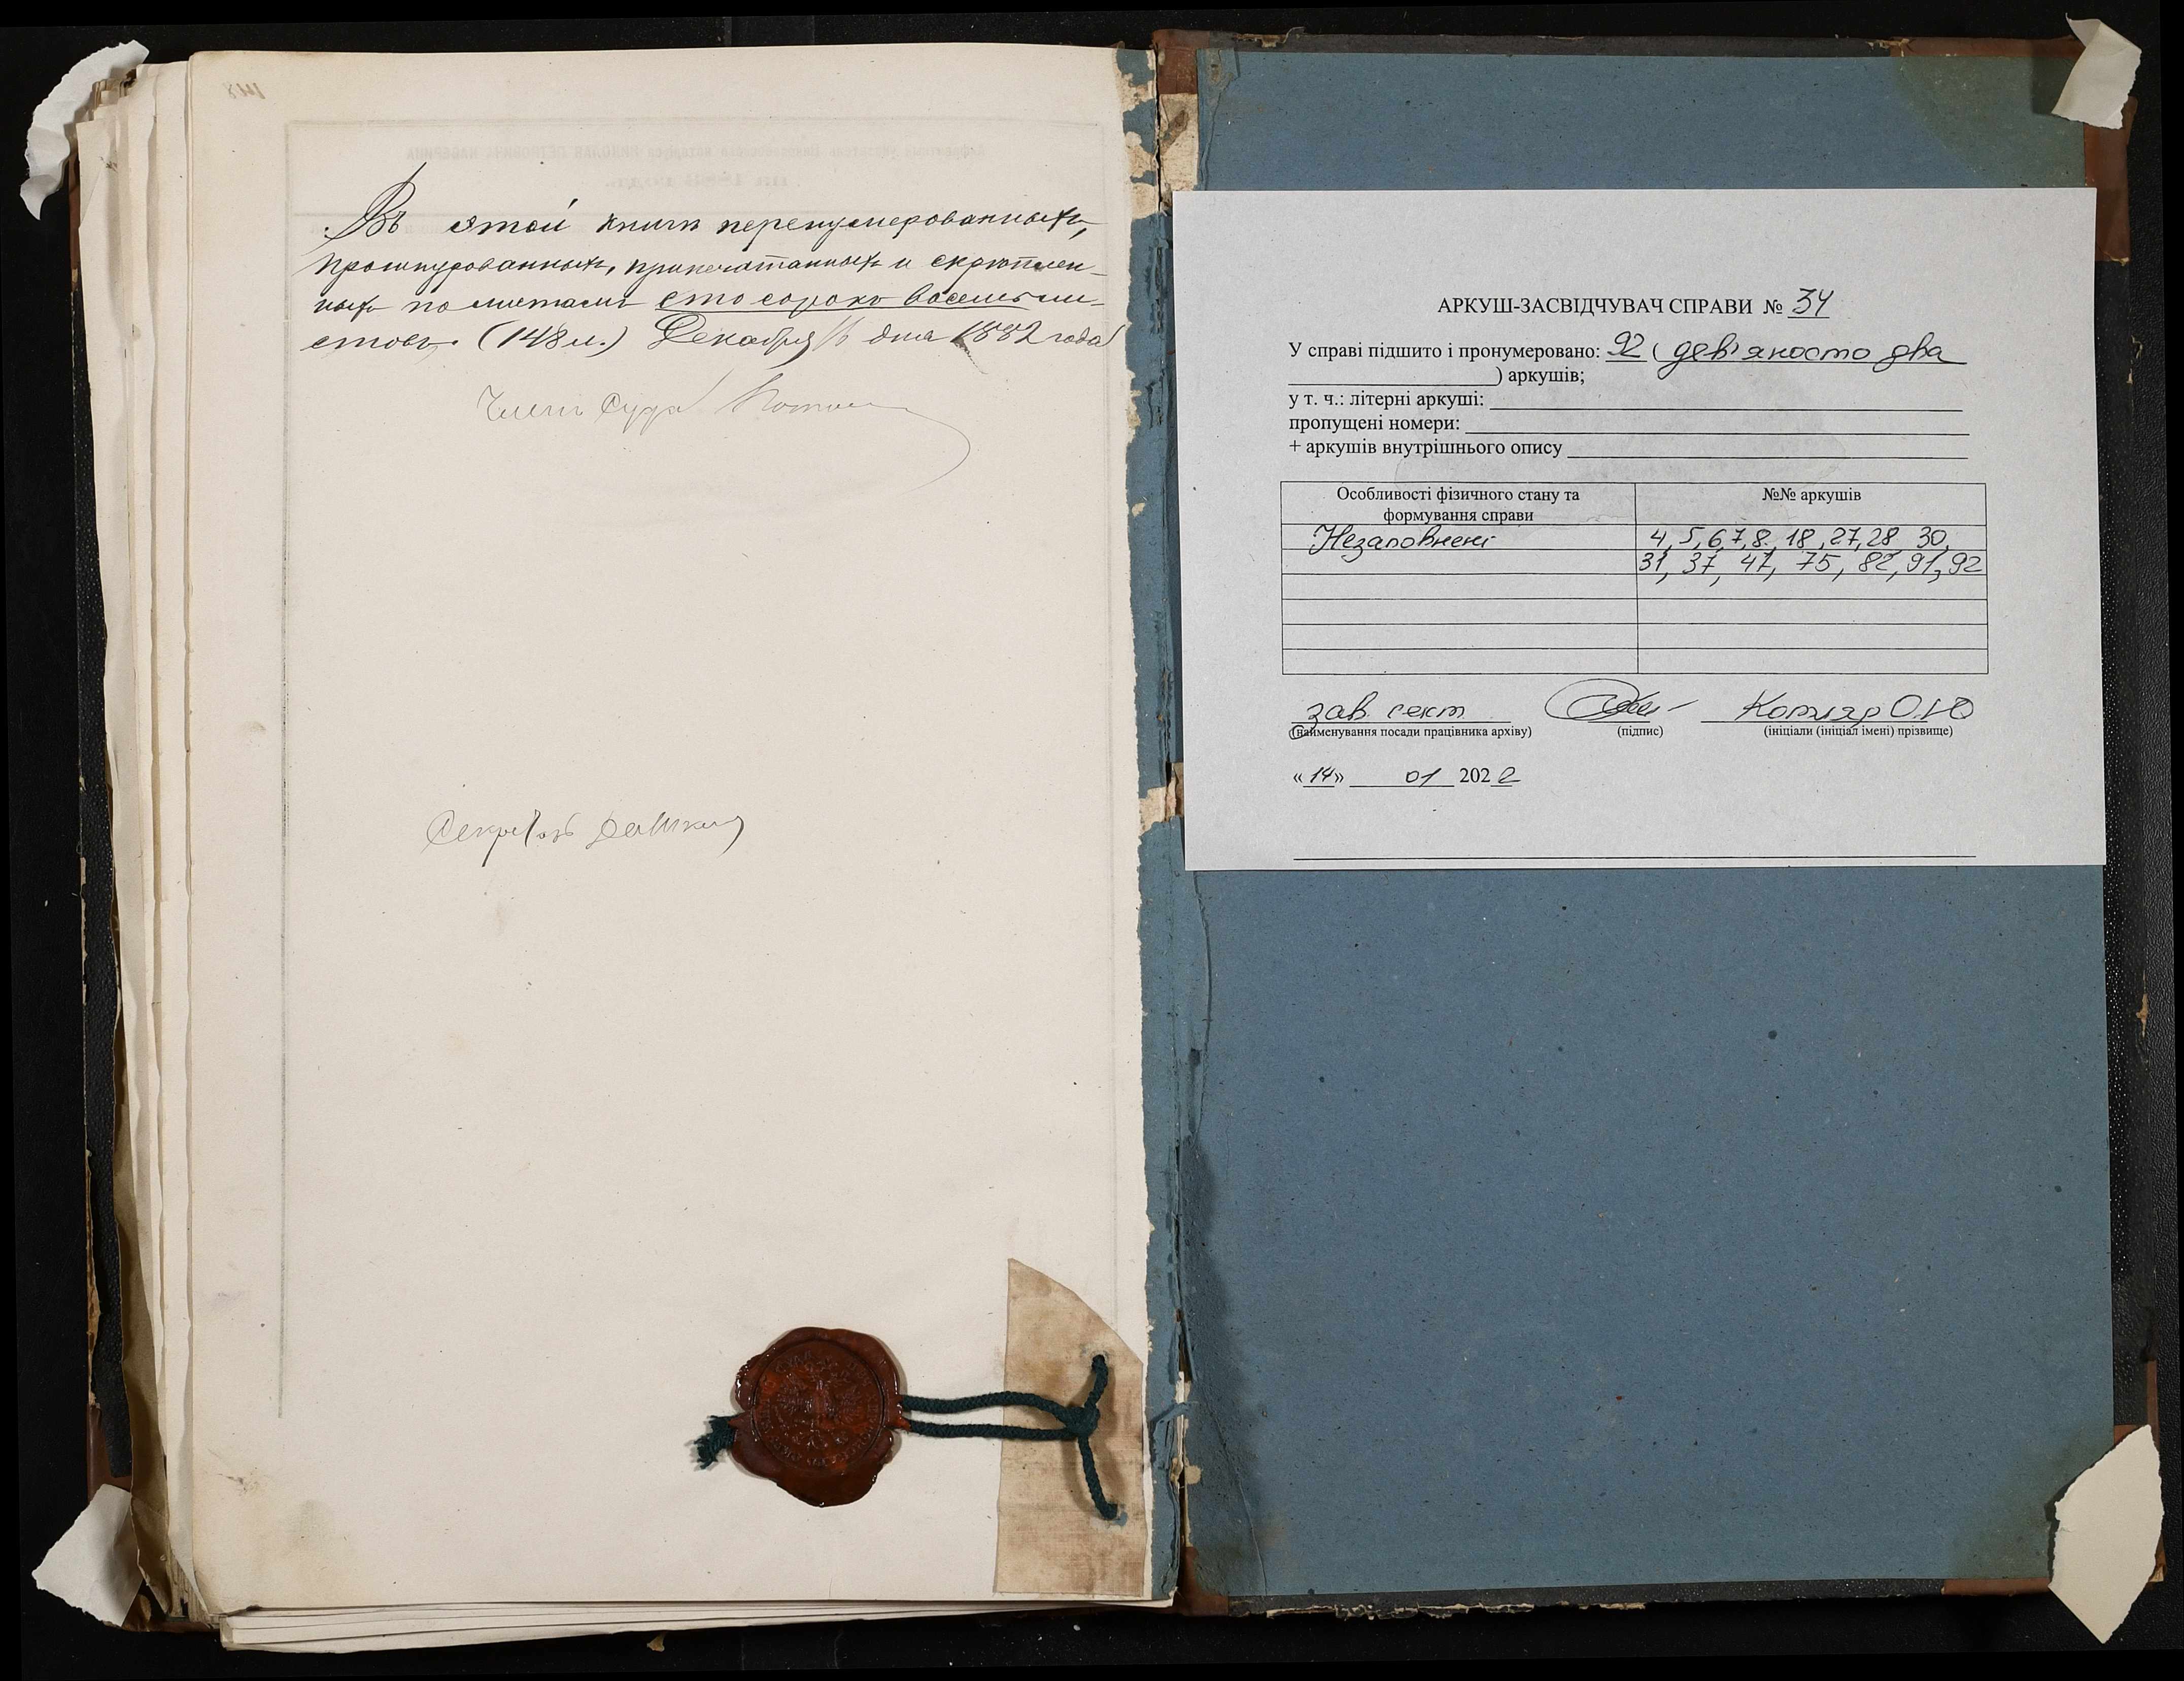 Въ этой книгѣ перенумерованныхъ,
прошнурованныхъ, припечатанныхъ и скрѣплен-
ныхъ по листамъ сто сорокъ восемь ли-
стовъ. (148 л.) Декабря 16 дня 1882 года
Членъ Суда
Секретарь
АРКУШ-ЗАСВІДЧУВАЧ СПРАВИ № 34
У справі підшито і пронумеровано: 92 ( дев'яносто два
) аркушів;
у т. ч.: літерні аркуші:
пропущені номери:
+ аркушів внутрішнього опису
Особливості фізичного стану та формування справи
№№ аркушів
Незаповнені
4, 5, 6, 7, 8, 18, 27, 28 30,
31, 37, 47, 75, 82, 91, 92
зав. сект Котляр О.Ю
(найменування посади працівника архіву) (підпис) (ініціали (ініціал імені) прізвище)
«14» 01 2022